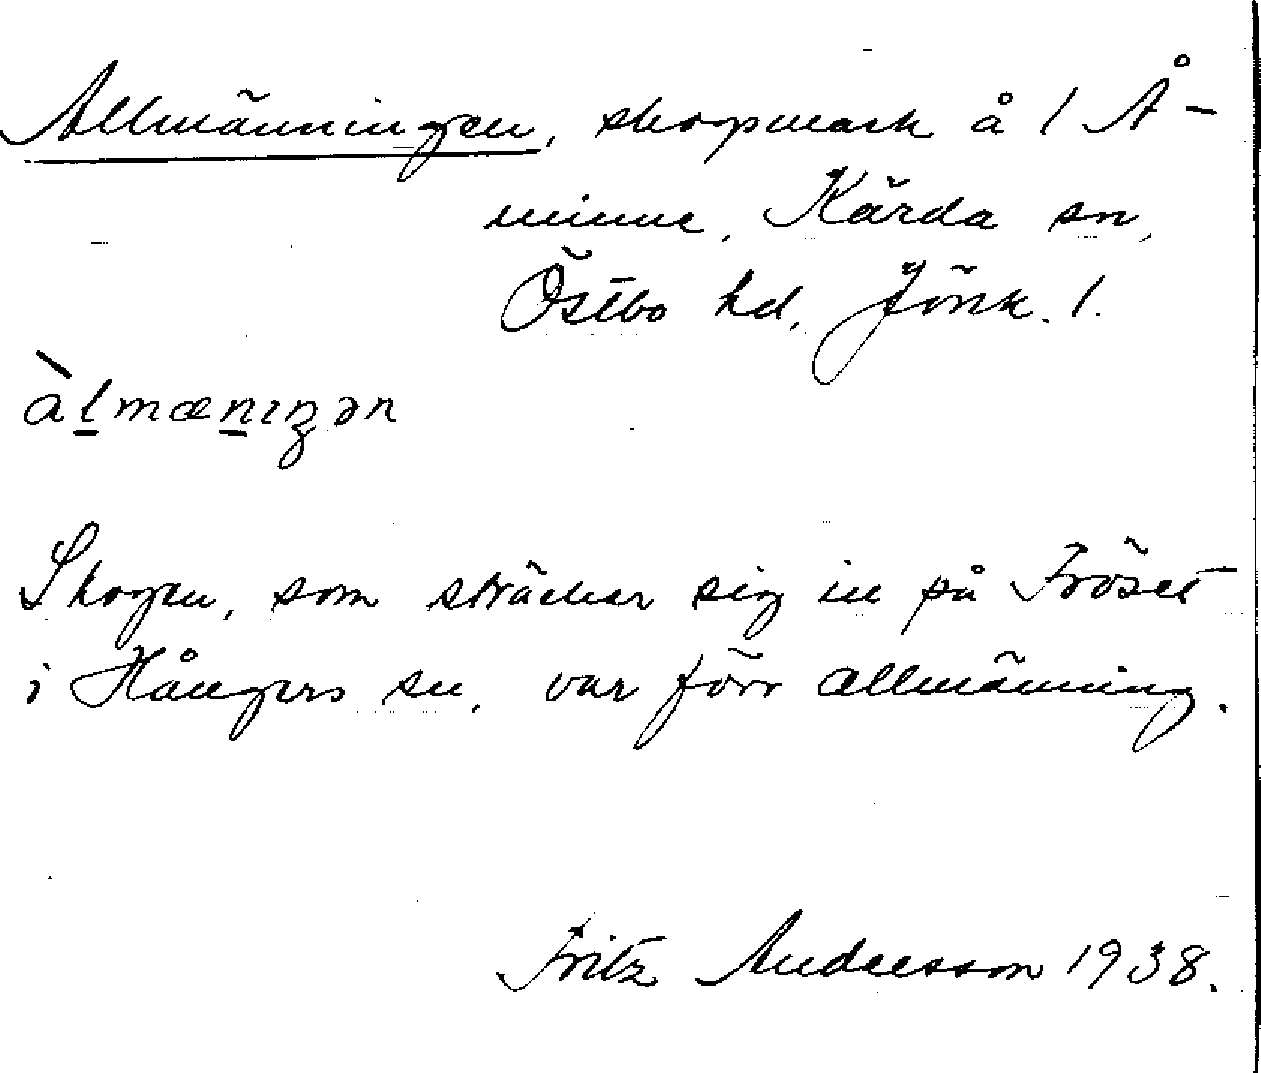 Allmänningen, skogsmark å 1 Å-
minne, Kärda sn,
Östbo hd, Jönk. l.
àlmænıŋən
Skogen, som sträcker sig in på Fröset
i Hångers sn, var förr allmänning.
Fritz Andersson 1938.